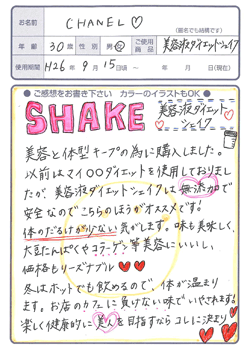 お名前 CHANEL♡
(匿名でも結構です)
年齢 30歳 性別 男・女 ご使用商品 美容液ダイエットシェイク
使用期間 H26年9月15日頃 ~ 年 月 日(現在)
●ご感想をお書き下さい カラーのイラストもOK●
SHAKE
美容液ダイエットシェイク
美容と体型キープの為に購入しました。
以前はマイ〇〇ダイエットを使用しておりまし
たが、美容液ダイエットシェイクは無添加で
安全なのでこちらのほうがオススメです!
体のだるけが少ない気がします。味も美味しく、
大豆たんぱくやコラーゲン等美容にいいし、
価格もリーズナブル
冬はホットでも飲めるので、体が温まり
ます。お店のカフェに負けない味でいやされます!
楽しく健康的に美人を目指すなら コレに決まり